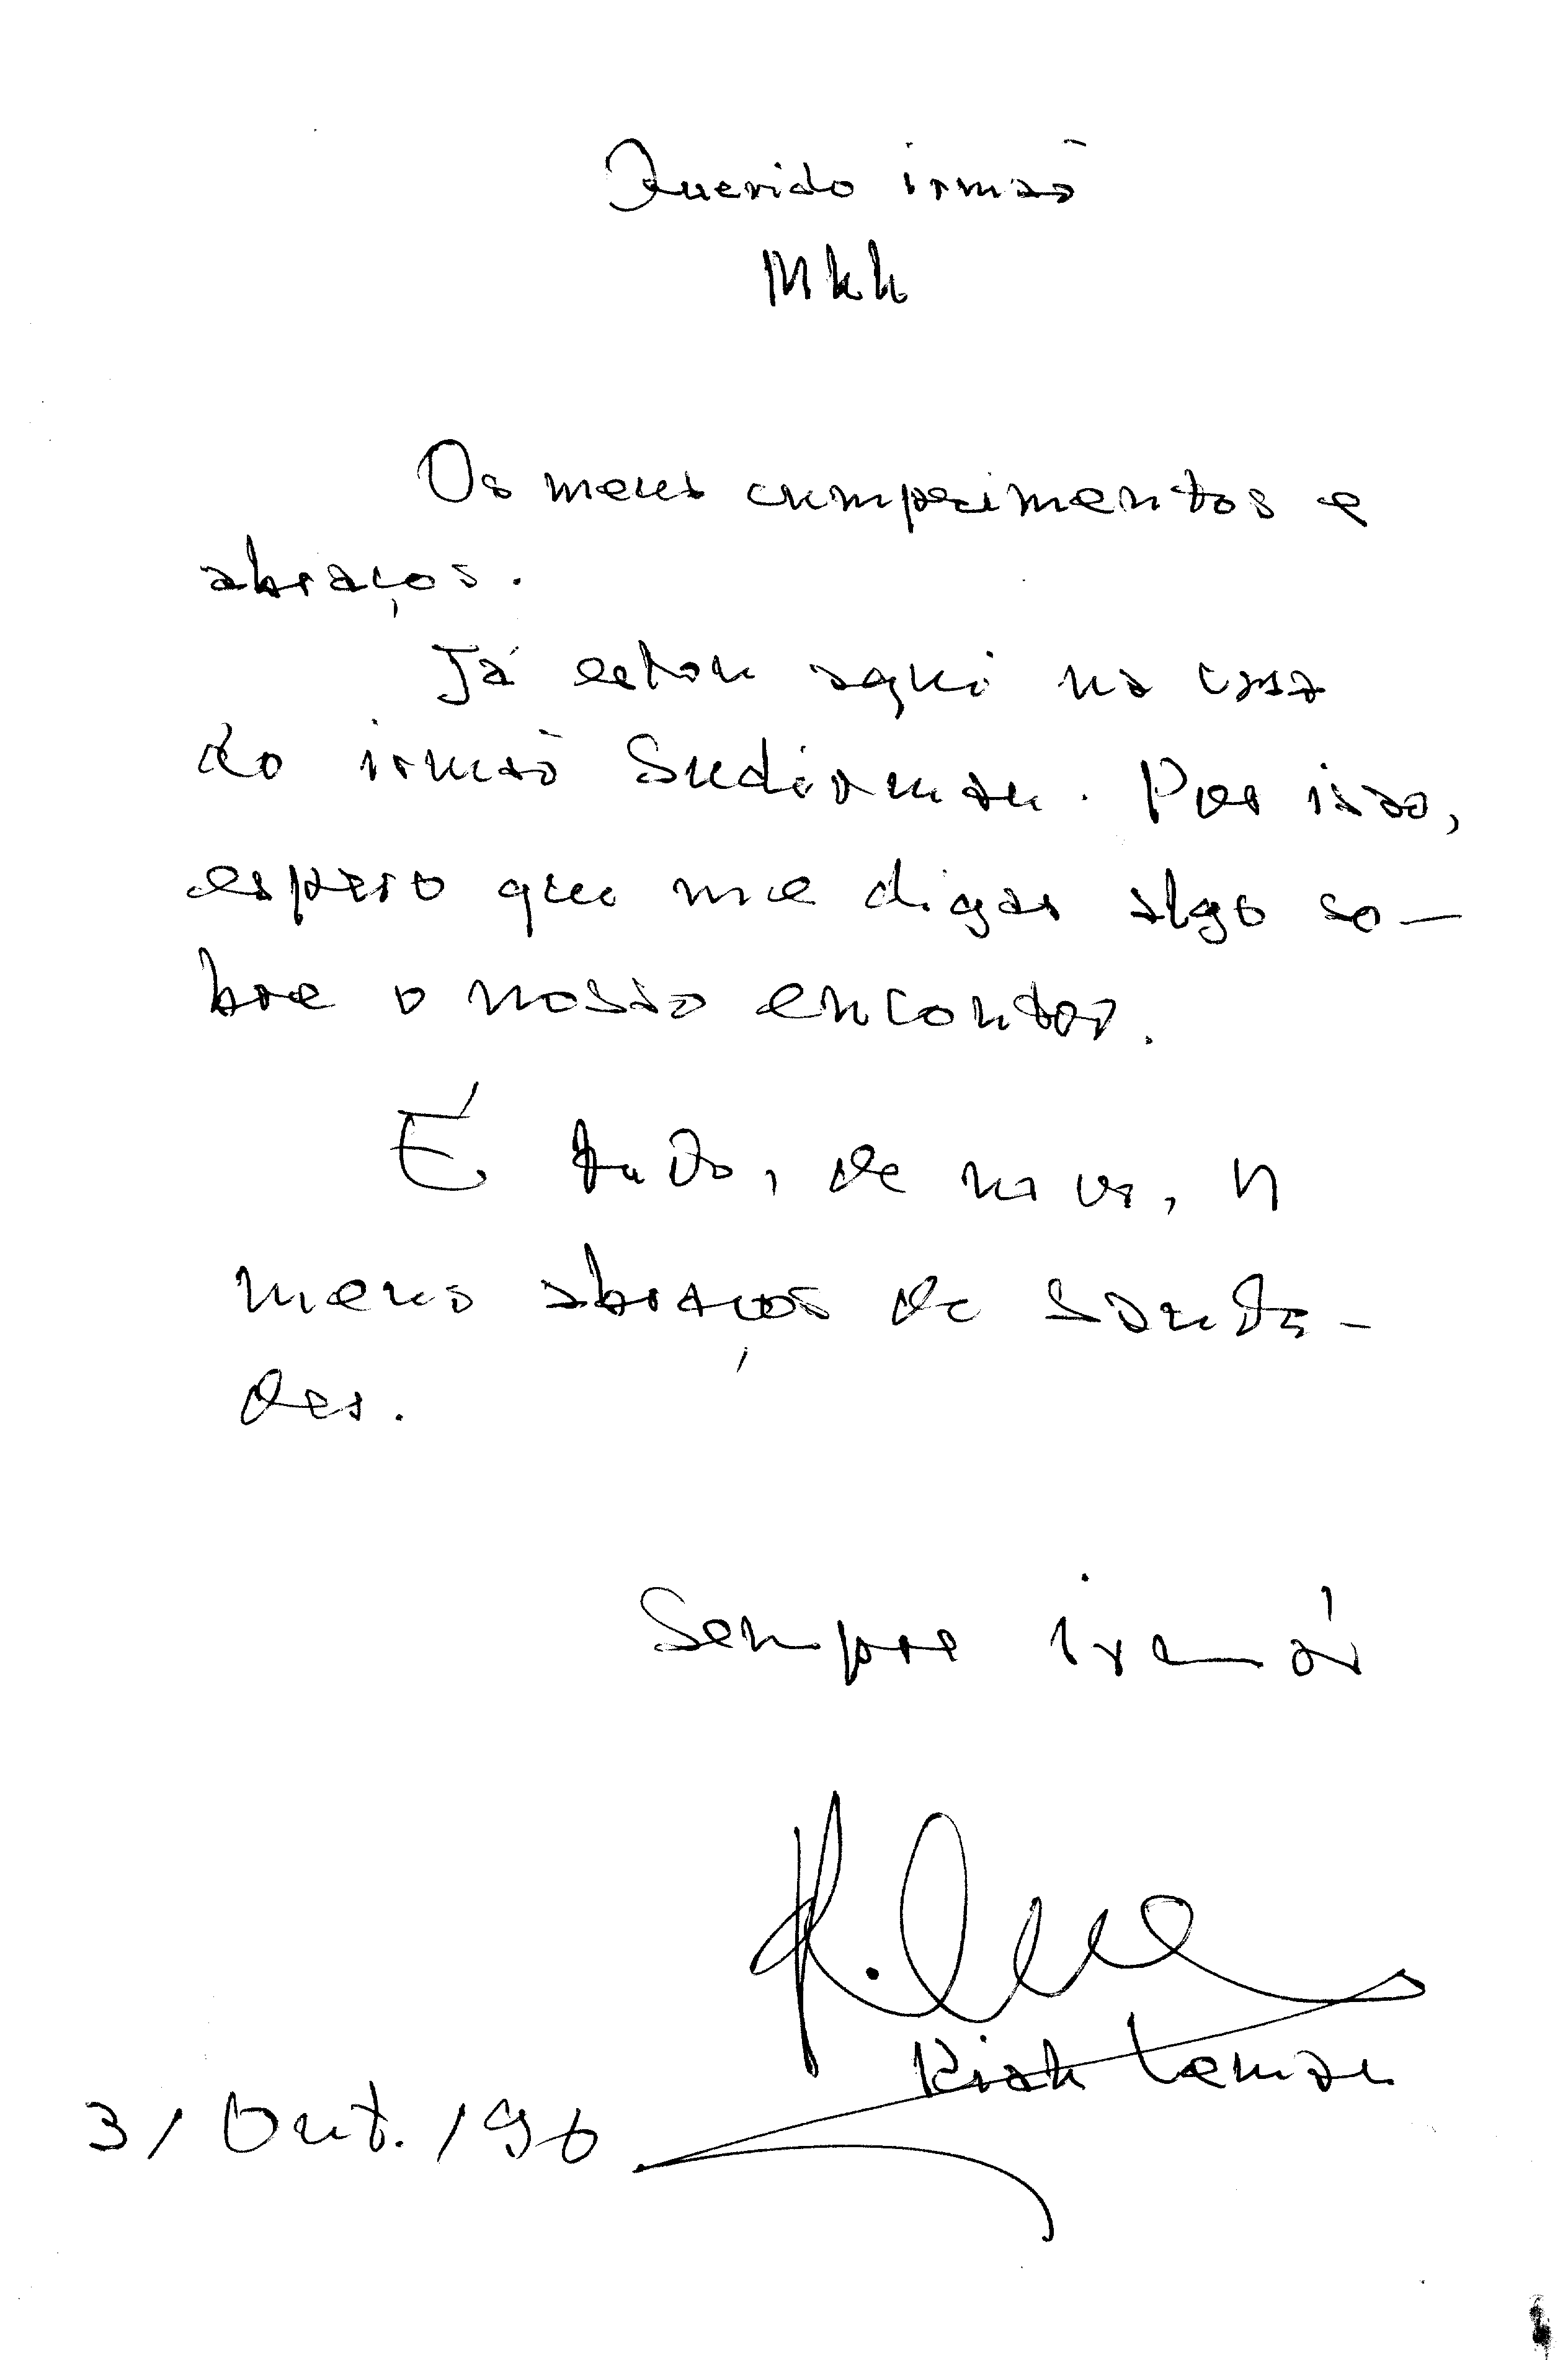 Querido irmão
Mkh
Os meus cumprimentos e
abraços.
Já estou aqui na casa
do irmão Sudirman. Por isso,
espero que me digas algo so-
bre o nosso encontro.
É tudo, de novo, os
meus abraços de sauda-
des.
Sempre irmão
Riak Leman
3/Out./96